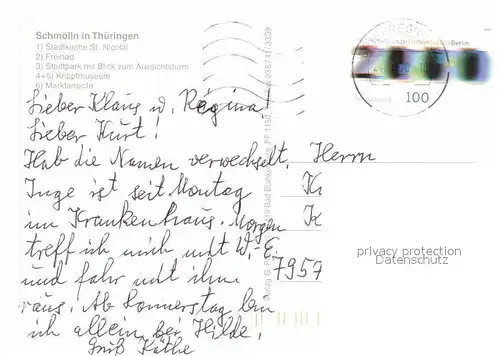 Schmölln in Thüringen
1) Stadtkirche St. Nicolai
2) Freibad
3) Stadtpark mit Blick zum Aussichtsturm
4+5) Knopfmuseum
6) Marktansicht
Lieber Klaus u. Regina!
Lieber Kurt!
Hab die Namen verwechselt.
Inge ist seit Montag
im Krankenhaus. Morgen
treff ich mich mit W.-E.
und fahr mit ihm
raus. Ab Donnerstag bin
ich allein bei Hilde.
Gruß Käthe
Herrn
K
K
7957
100
Berlin
privacy protection
Datenschutz